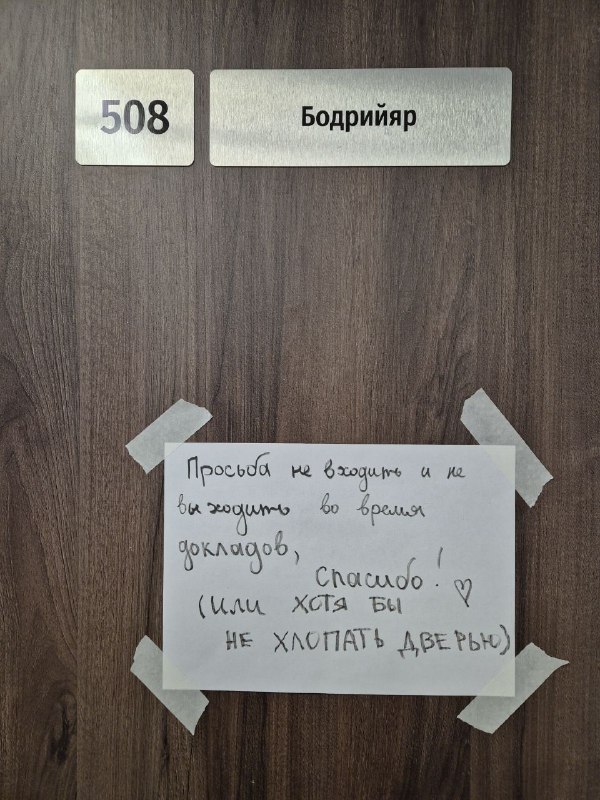 508
Бодрийяр
Просьба не входить и не
выходить во время
докладов,
спасибо! ♡
(или ХОТЯ БЫ
НЕ ХЛОПАТЬ ДВЕРЬЮ)